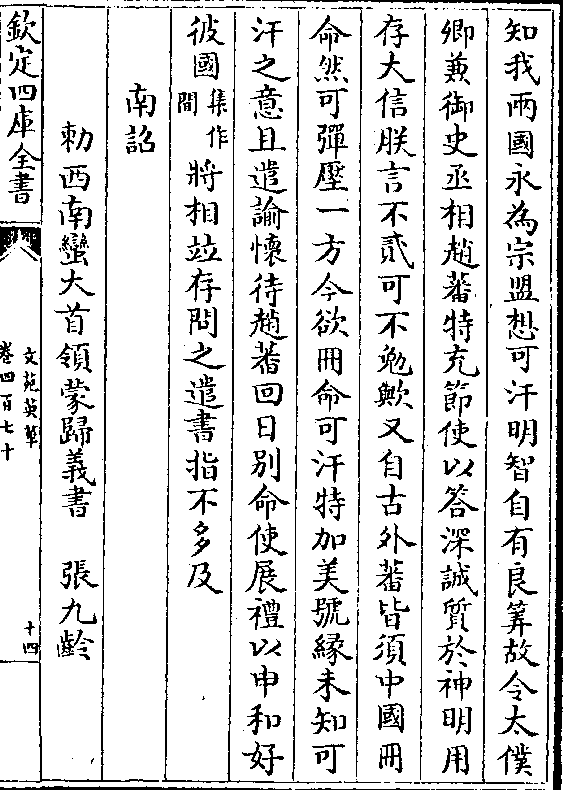 知我兩國永為宗盟想可汗明智自有良筭故令太僕
卿兼御史丞相趙蕃特充節使以答深誠質於神明用
存大信朕言不貳可不勉歟又自古外蕃皆須中國冊
命然可彈壓一方今欲冊命可汗特加美號緣未知可
汗之意且遣諭懷待趙蕃回日別命使展禮以申和好
彼國集作間將相竝存問之遣書指不多及
南詔
勅西南蠻大首領蒙歸義書 張九齡
欽定四庫全書
文苑英華
卷四百七十
十四